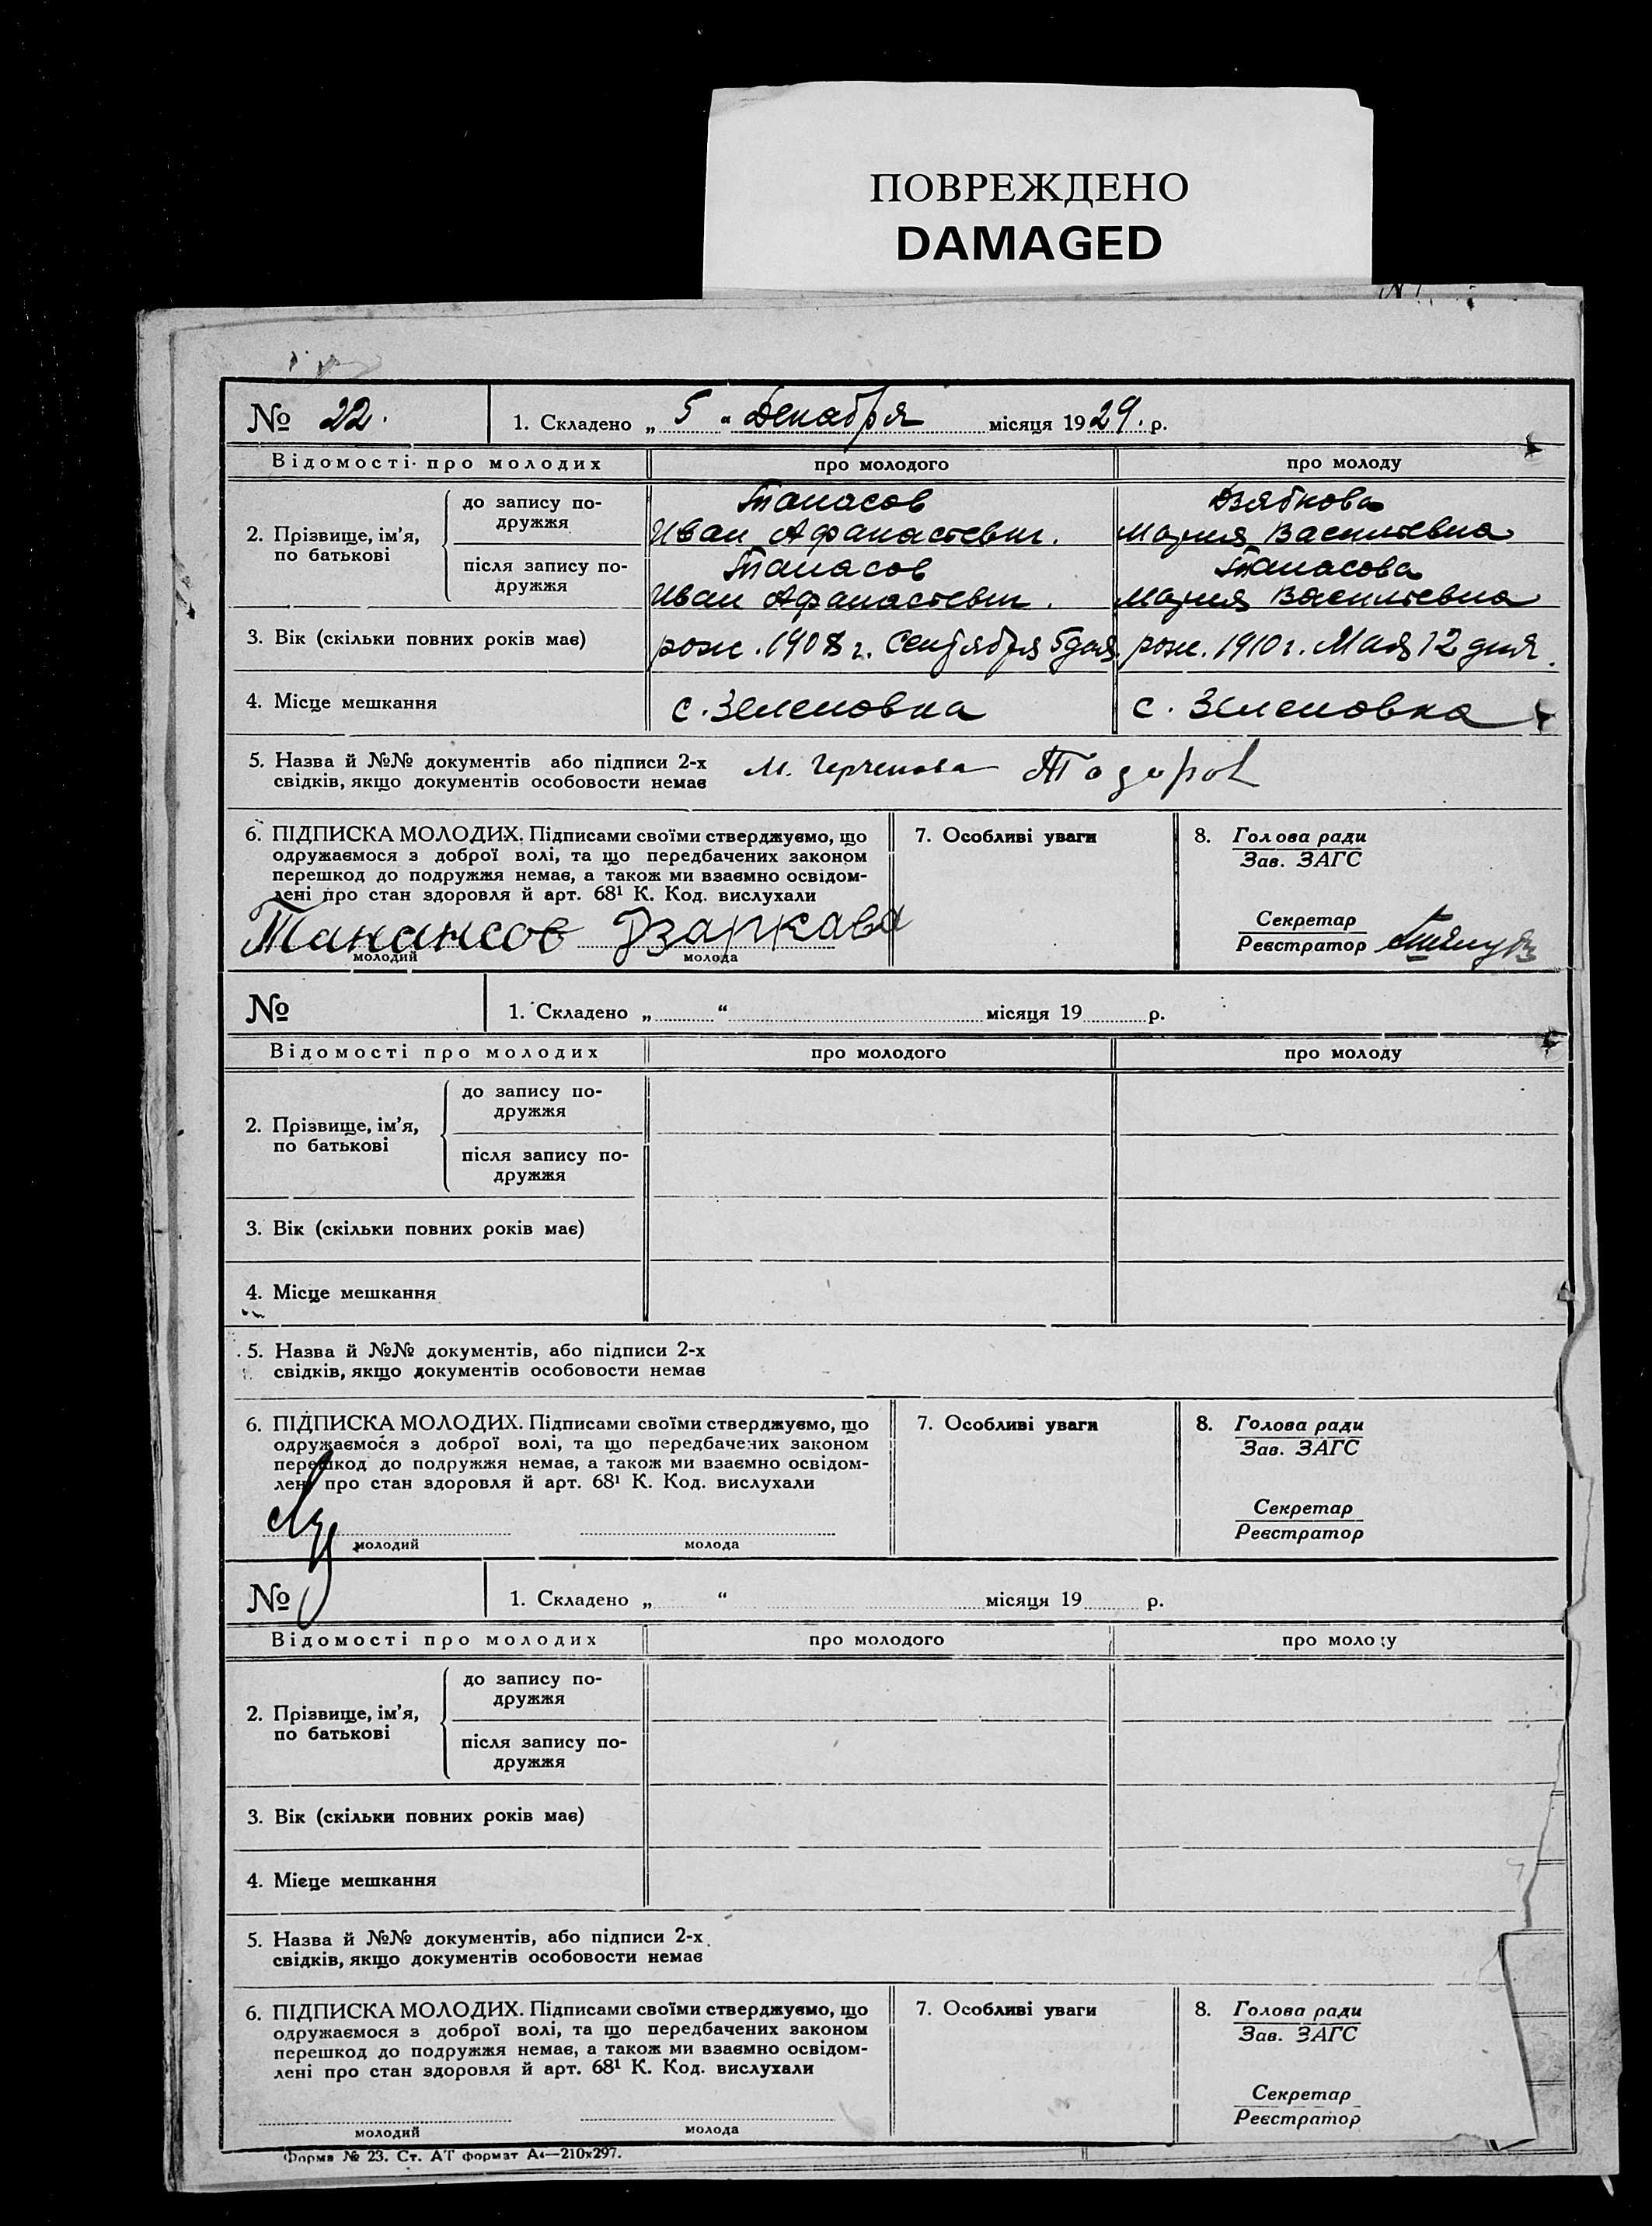 ПОВРЕЖДЕНО
DAMAGED
№ 22. 1. Складено „ 5 “ Декабря місяця 1929. р.
Відомості про молодих про молодого про молоду
2. Прізвище, ім’я, по батькові
до запису по-
дружжя
Танасов
Иван Афанасьевич.
Дзябкова
Мария Васильевна
після запису по-
дружжя
Танасов
Иван Афанасьевич.
Танасова
Мария Васильевна
3. Вік (скільки повних років має) рож. 1908 г. Сентября 5 дня рож. 1910 г. Мая 12 дня.
4. Місце мешкання с. Зеленовка с. Зеленовка
5. Назва й №№ документів або підписи 2-х
свідків, якщо документів особовости немає
М. Тодоров
6. ПІДПИСКА МОЛОДИХ. Підписами своїми стверджуємо, що
одружаємося з доброї волі, та що передбачених законом
перешкод до подружжя немає, а також ми взаємно освідом-
лені про стан здоровля й арт. 68¹ К. Код. вислухали
Танансов Дзапкава
молодий молода
7. Особливі уваги
8. Голова ради
Зав. ЗАГС
Секретар
Реєстратор
№ 1. Складено „ “ місяця 19 р.
Відомості про молодих про молодого про молоду
2. Прізвище, ім’я,
по батькові
до запису по-
дружжя
після запису по-
дружжя
3. Вік (скільки повних років має)
4. Місце мешкання
5. Назва й №№ документів, або підписи 2-х
свідків, якщо документів особовости немає
6. ПІДПИСКА МОЛОДИХ. Підписами своїми стверджуємо, що
одружаємося з доброї волі, та що передбачених законом
перешкод до подружжя немає, а також ми взаємно освідом-
лені про стан здоровля й арт. 68¹ К. Код. вислухали
молодий молода
7. Особливі уваги
8. Голова ради
Зав. ЗАГС
Секретар
Реєстратор
№ 1. Складено „ “ місяця 19 р.
Відомості про молодих про молодого про молоду
2. Прізвище, ім’я,
по батькові
до запису по-
дружжя
після запису по-
дружжя
3. Вік (скільки повних років має)
4. Місце мешкання
5. Назва й №№ документів, або підписи 2-х
свідків, якщо документів особовости немає
6. ПІДПИСКА МОЛОДИХ. Підписами своїми стверджуємо, що
одружаємося з доброї волі, та що передбачених законом
перешкод до подружжя немає, а також ми взаємно освідом-
лені про стан здоровля й арт. 68¹ К. Код. вислухали
молодий молода
7. Особливі уваги
8. Голова ради
Зав. ЗАГС
Секретар
Реєстратор
Форма № 23. Ст. АТ формат А4—210х297.